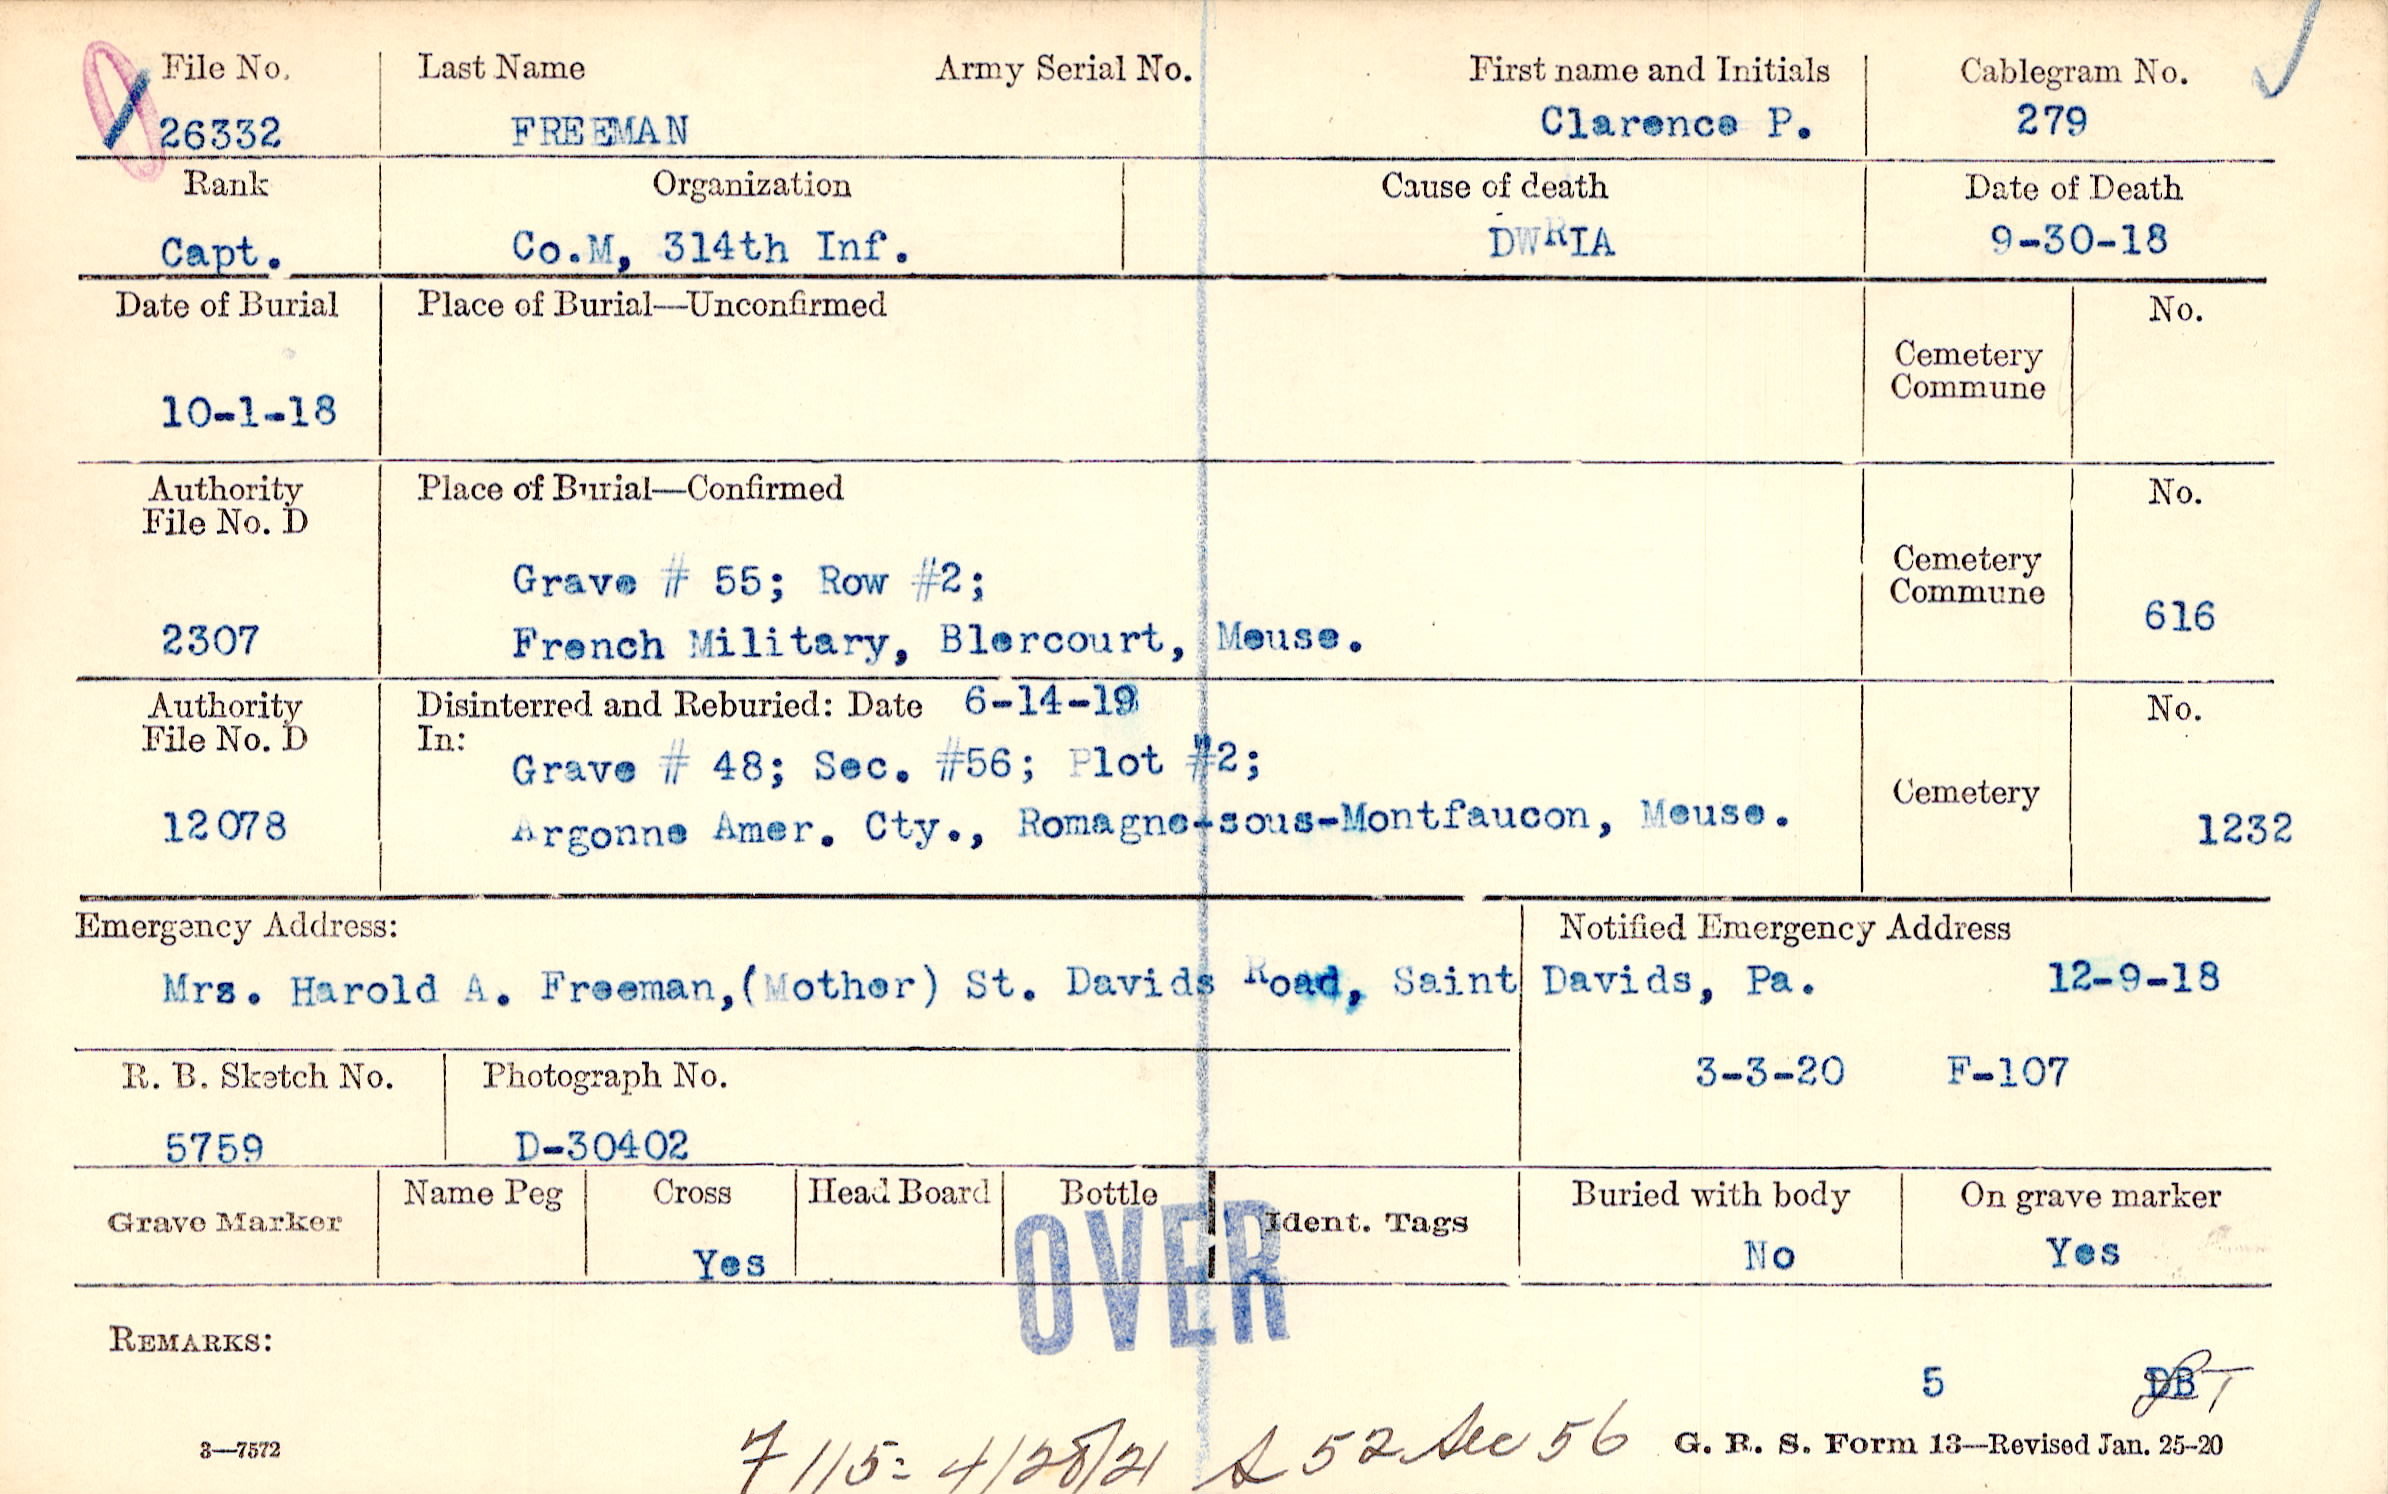 File No. Last Name Army Serial No. First name and Initials Cablegram No.
26332 FREEMAN Clarence P. 279
Rank Organization Cause of death Date of Death
Capt. Co.M, 314th Inf. DWRIA 9-30-18
Date of Burial Place of Burial—Unconfirmed No.
Cemetery
Commune
10-1-18
Authority Place of Burial—Confirmed No.
File No. D
Cemetery
Commune
Grave # 55; Row #2;
616
2307 French Military, Blercourt, Meuse.
Authority Disinterred and Reburied: Date 6-14-19 No.
File No. D In:
Grave # 48; Sec. #56; Plot #2;
Cemetery
12078 Argonne Amer. Cty., Romagne-sous-Montfaucon, Meuse. 1232
Emergency Address: Notified Emergency Address
Mrs. Harold A. Freeman,(Mother) St. Davids Road, Saint Davids, Pa. 12-9-18
R. B. Sketch No. Photograph No. 3-3-20 F-107
5759 D-30402
Name Peg Cross Head Board Bottle Buried with body On grave marker
Grave Marker Ident. Tags
Yes No Yes
OVER
REMARKS:
5 DB
3—7572 7115: 4/28/21 S 52 Sec 56 G. R. S. Form 13—Revised Jan. 25-20